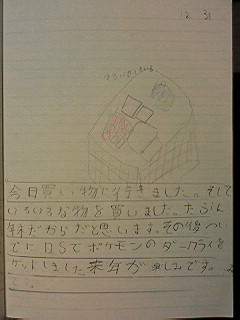 12 31
今日買い物に行きました。そして
いろいろな物を買いました。たぶん
年末だからだと思います。その後つい
でにDSでポケモンのダークライを
ゲットしました来年が楽しみです。